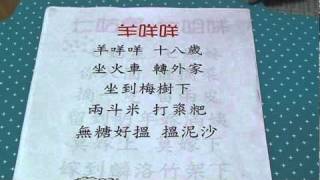 羊咩咩
羊咩咩 十八歲
坐火車 轉外家
坐到梅樹下
兩斗米 打粢粑
無糖好搵 搵泥沙